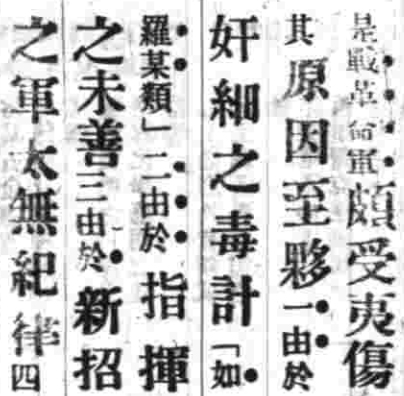 是戰革命軍頗受夷傷
其原因至夥一由於
奸細之毒計「如
羅某類」二由於指揮
之未善三由於新招
之軍太無紀律四